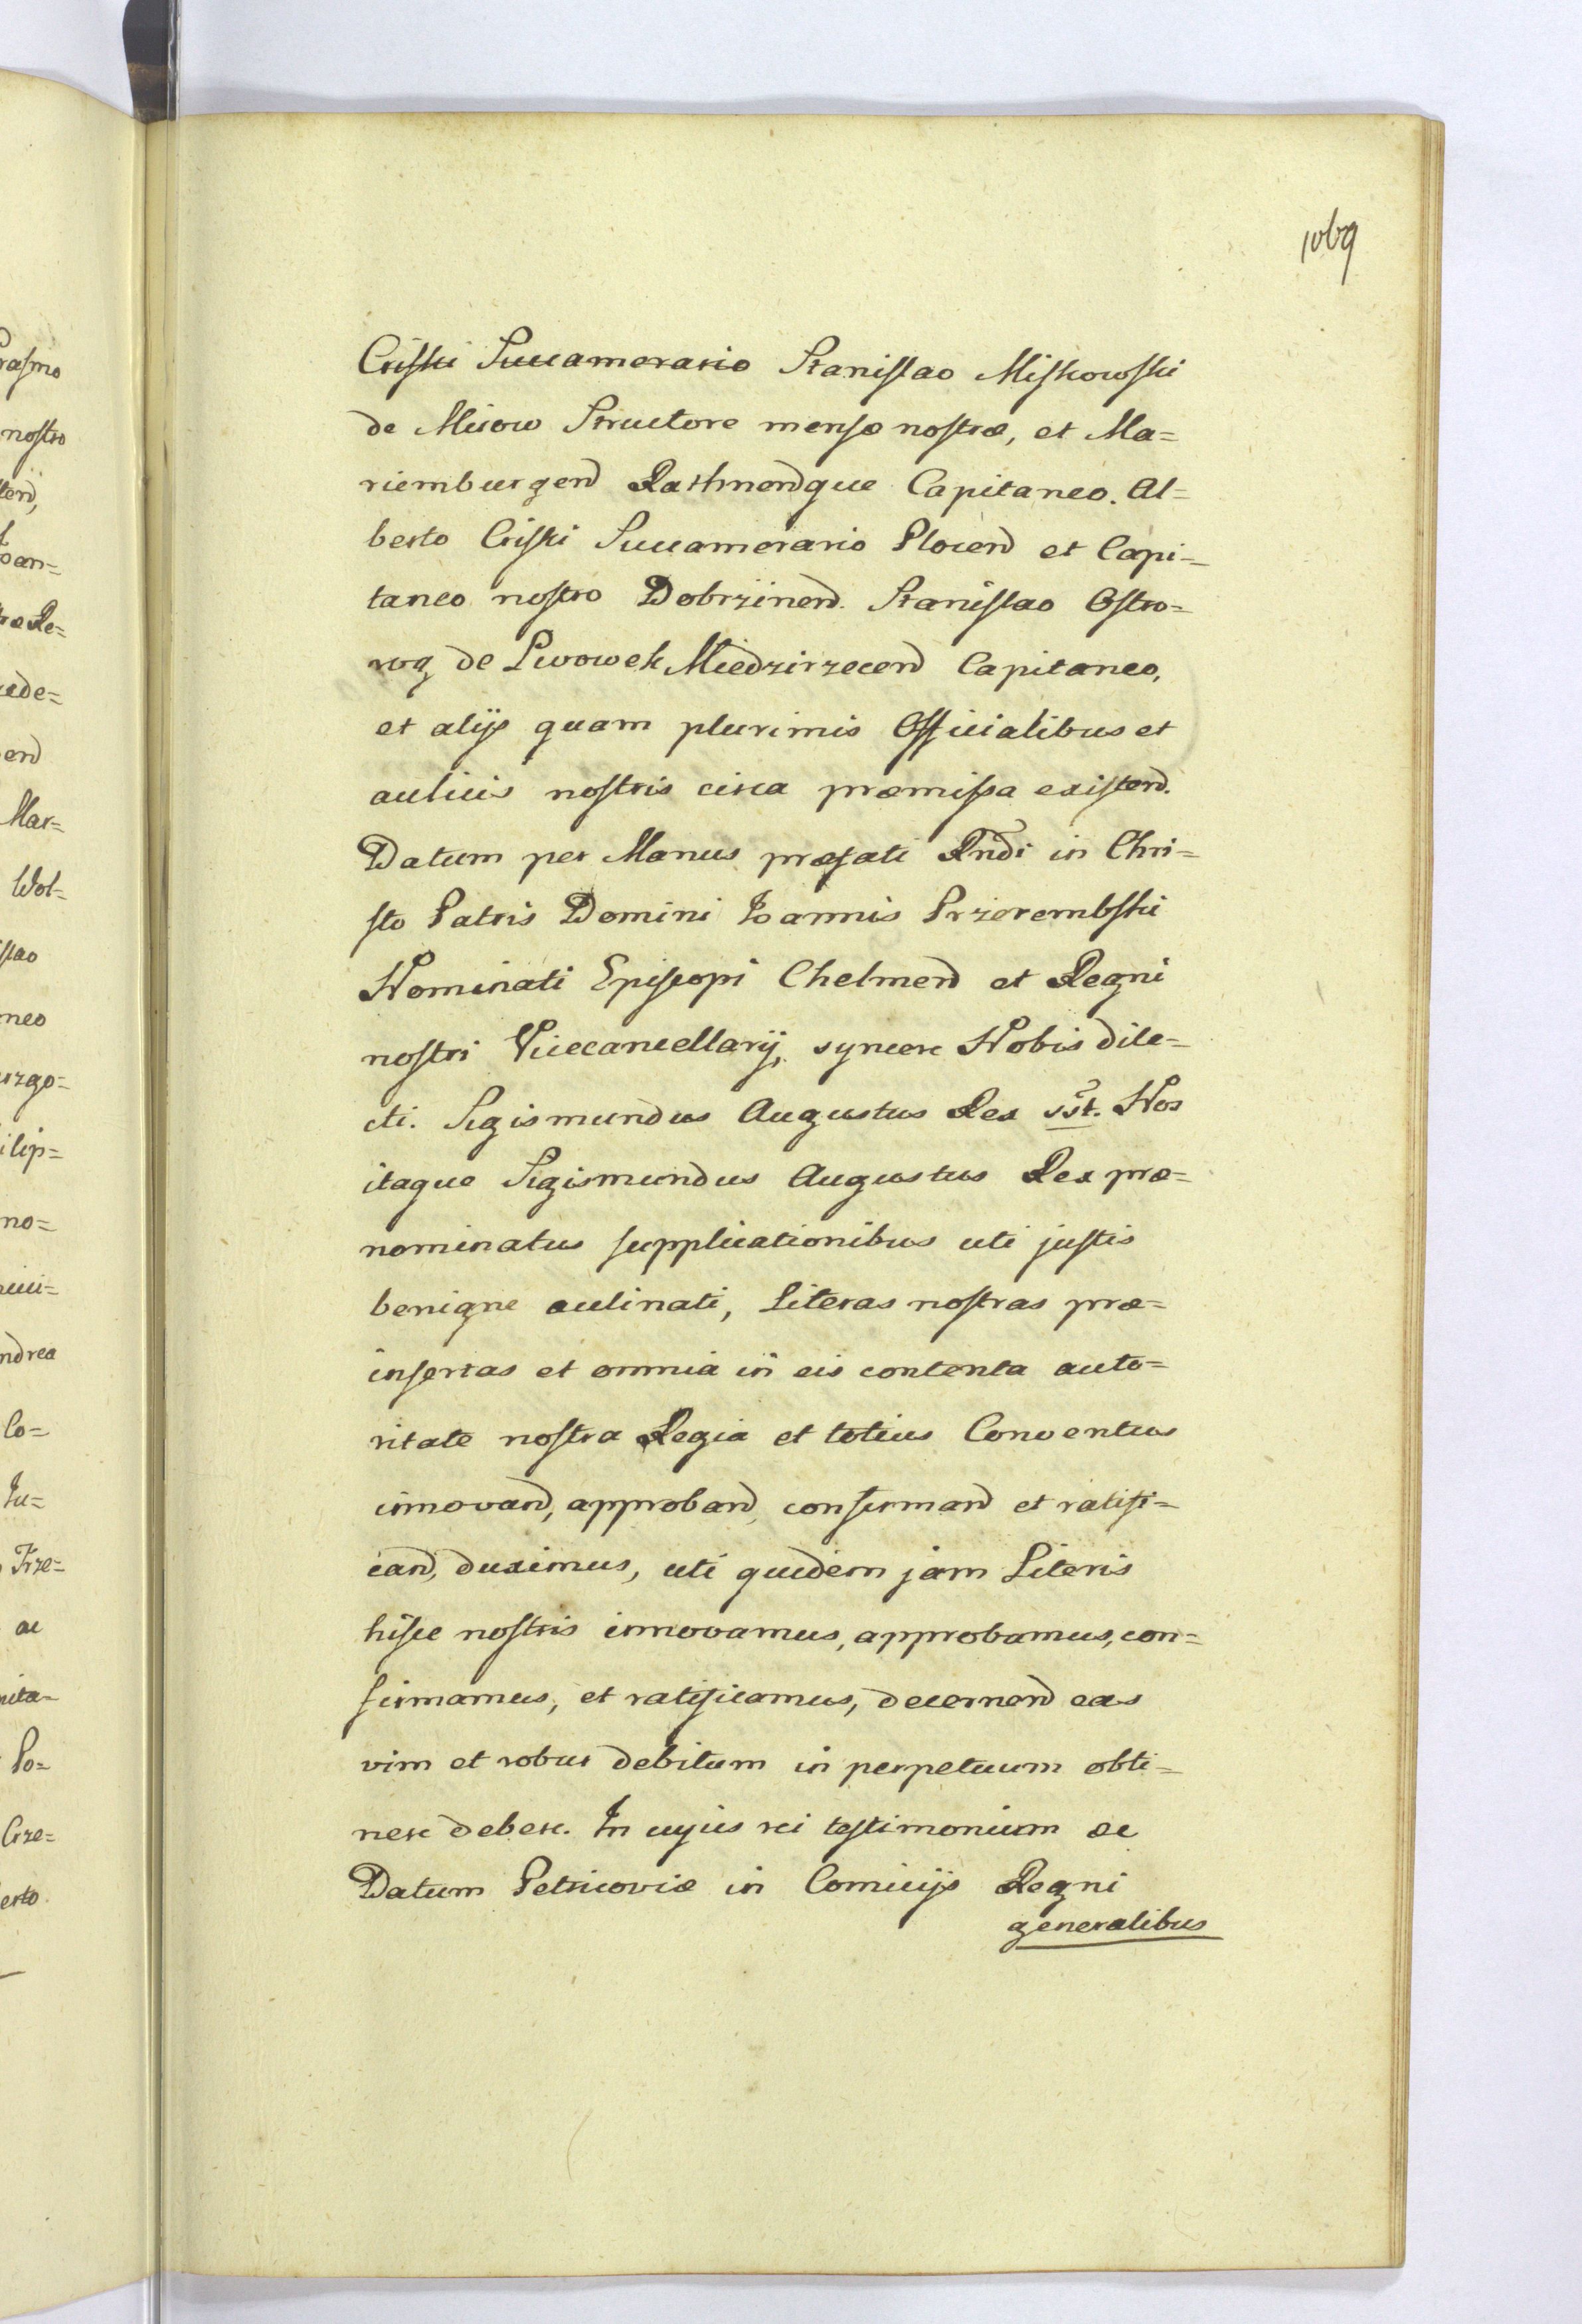 1069
Criski Succamerario Stanislao Miskowski
de Mirow Structore mensæ nostræ, et Ma=
riemburgen͠ Rathnen͠que Capitaneo. Al=
berto Criski Succamerario Plocen͠ et Capi=
taneo nostro Dobrzinen͠. Stanislao Ostro=
rog de Lwowek Miedzirzecen͠ Capitaneo,
et alijs quam plurimis Officialibus et
aulicis nostris circa præmissa existen͠.
Datum per Manus præfati Rn͠di in Chri=
sto Patris Domini Ioannis Przerembski
Nominati Episcopi Chelmen͠ et Regni
nostri Vicecancellarij, syncere Nobis dile=
cti. Sigismundus Augustus Rex sst. Nos
itaque Sigismundus Augustus Rex præ=
nominatus supplicationibus uti justis
benigne aclinati, Literas nostras præ=
insertas et omnia in eis contenta auto=
ritate nostra Regia et totius Conventus
innovan͠, approban͠, confirman͠ et ratifi=
can͠, duximus, uti quidem jam Literis
hisce nostris innovamus, approbamus, con=
firmamus, et ratificamus, decernen͠ eas
vim et robur debitum in perpetuum obti=
nere debere. In cujus rei testimonium &c
Datum Petricoviæ in Comicijs Regni
generalibus
rasmo
nostro
ten͠,
oan=
træ Re=
ede=
en͠
Mar=
Wol=
slao
neo
urgo=
ilip=
no=
ndrea
Co=
Iu=
Trze=
ac
pita=
Po=
Crze=
erto